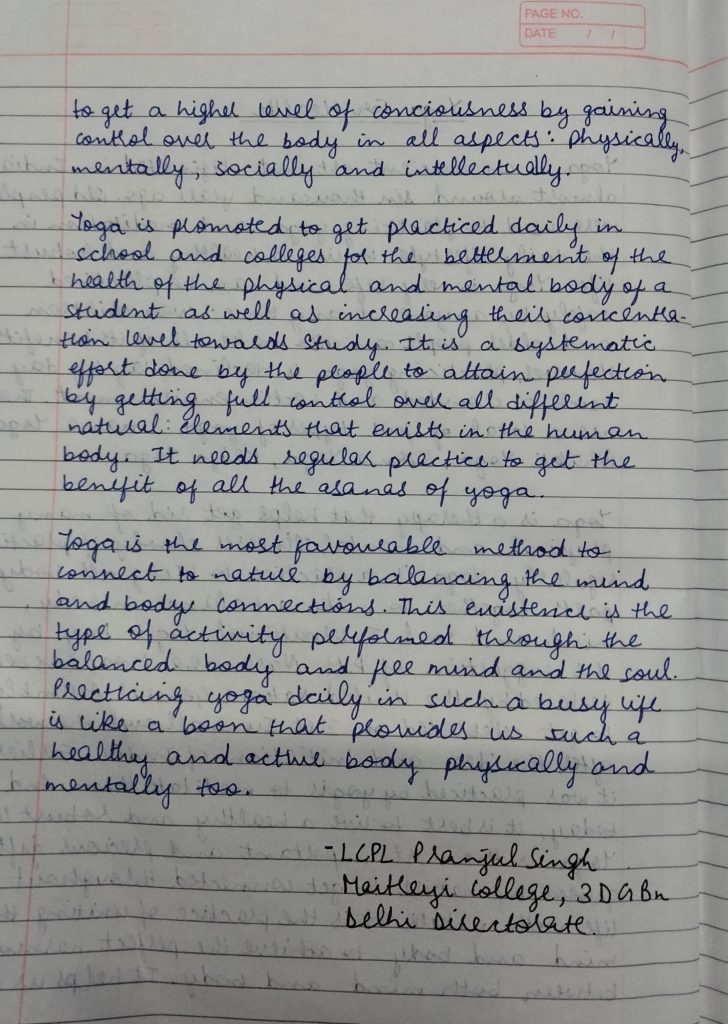 PAGE NO.
DATE / /
to get a higher level of conciousness by gaining
control over the body in all aspects: Physically,
mentally, socially and intellectually.
Yoga is promoted to get practiced daily in
school and colleges for the betterment of the
health of the physical and mental body of a
student as well as increasing their concentra-
tion level towards study. It is a systematic
effort done by the people to attain perfection
by getting full control over all different
natural elements that exists in the human
body. It needs regular practice to get the
benefit of all the asanas of yoga.
Yoga is the most favourable method to
connect to nature by balancing the mind
and body connections. This existence is the
type of activity performed through the
balanced body and free mind and the soul.
Practicing yoga daily in such a busy life
is like a boon that provides us such a
healthy and active body physically and
mentally too.
- LCPL Pranjul Singh
Maitreyi College, 3DGBn
Delhi Directorate